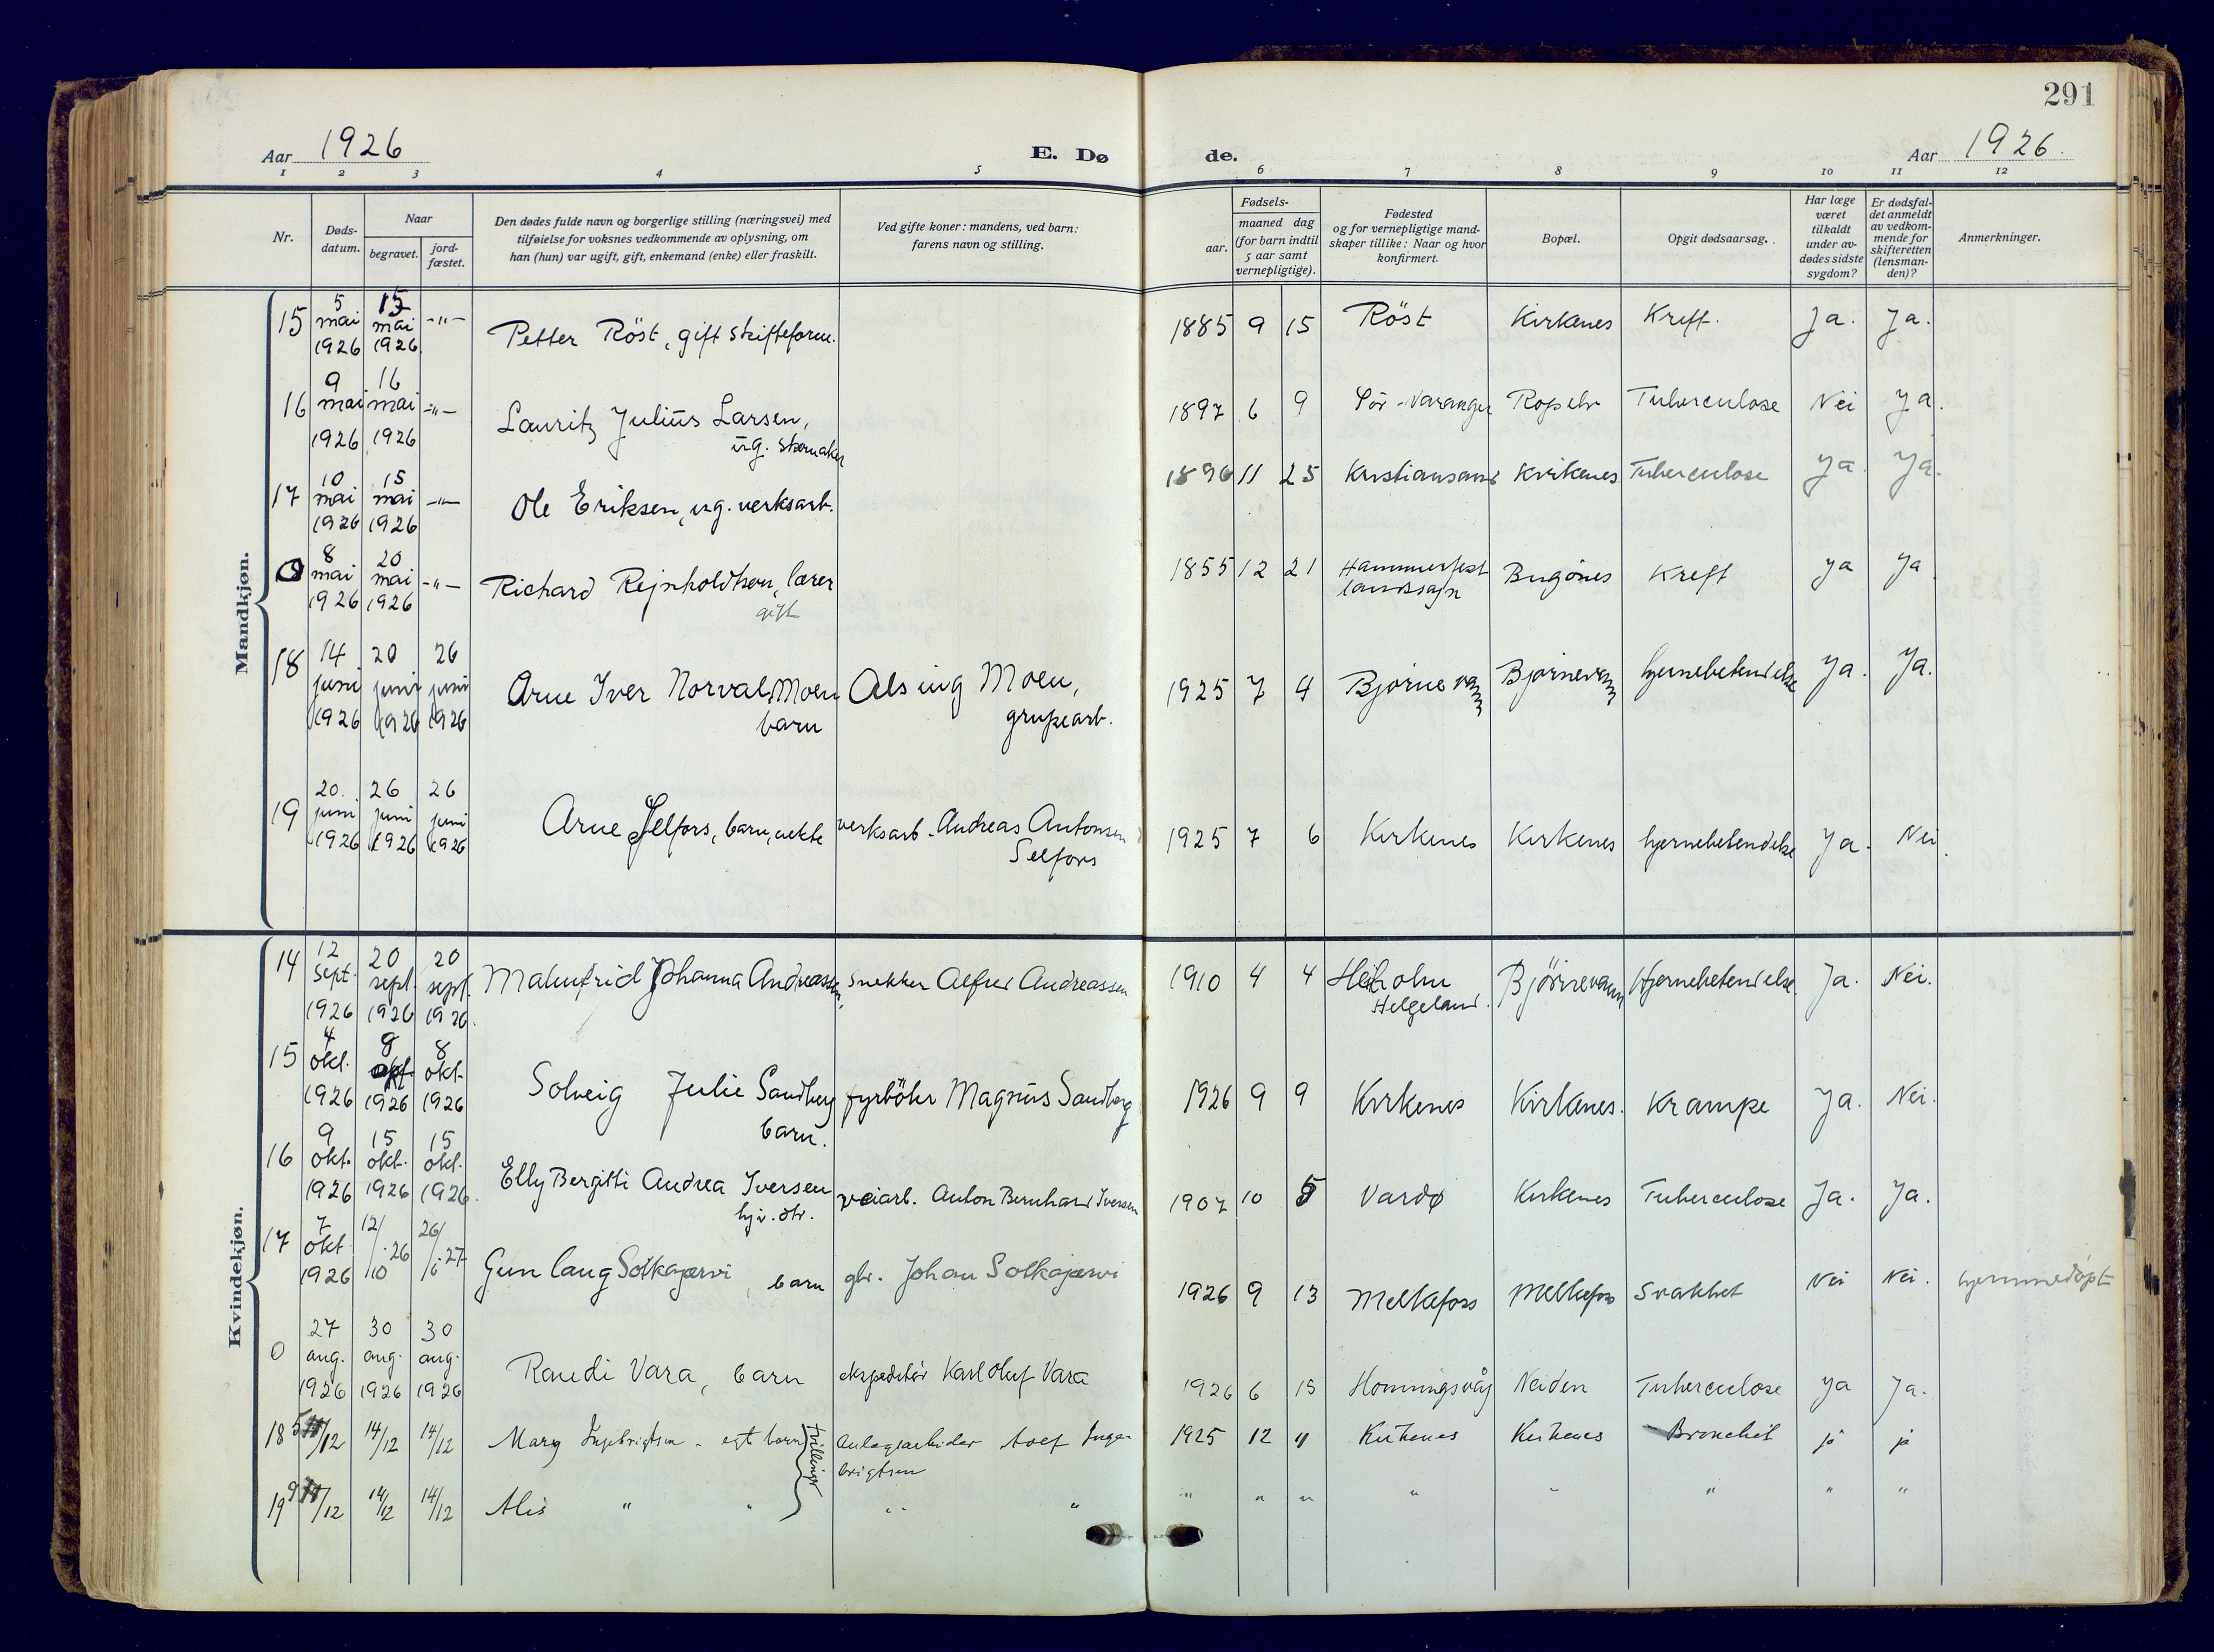 291
Aar 1926 E. Dø de. Aar 1926.
1 2 3 4 5 6 7 8 9 10 11 12
Nr.
Døds-
datum.
Naar
begravet.
jord-
fæstet.
Den dødes fulde navn og borgerlige stilling (næringsvei) med
tilføielse for voksnes vedkommende av oplysning, om
han (hun) var ugift, gift, enkemand (enke) eller fraskilt.
Ved gifte koner: mandens, ved barn:
farens navn og stilling.
Fødsels-
aar.
maaned dag
(for barn indtil
5 aar samt
vernepligtige).
Fødested
og for vernepligtige mand-
skaper tillike: Naar og hvor
konfirmert.
Bopæl.
Opgit dødsaarsag.
Har læge
været
tilkaldt
under av-
dødes sidste
sygdom?
Er dødsfal-
det anmeldt
av vedkom-
mende for
skifteretten
(lensman-
den)?
Anmerkninger.
Mandkjøn.
15 5 mai 1926 15 mai 1926 -"- Petter Röst, gift skifteform. 1885 9 15 Röst Kirkenes Kreft. Ja. Ja.
16 9 mai 1926 16 mai 1926 -"- Lauritz Julius Larsen, 1897 6 9 Sör-Varanger Ropelv Tuberculose Nei Ja.
ug. skomaker
17 10 mai 1926 15 mai 1926 -"- Ole Eriksen, ug. verksarb. 1896 11 25 Kristiansand Kirkenes Tuberculose Ja. Ja.
0 8 mai 1926 20 mai 1926 -"- Richard Rejnholdtsen, lærer 1855 12 21 Hammerfest Bugönes Kreft Ja Ja
gift landssogn
18 14 juni 1926 20 juni 1926 26 juni 1926 Arne Iver Norval Moen Alsing Moen, 1925 7 4 Bjørnevann Bjørnevann hjernebetendelse Ja. Ja.
barn grubearb.
19 20. juni 1926 26 juni 1926 26 juni 1926 Arne Selfors, barn, uekte verksarb. Andreas Antonsen 1925 7 6 Kirkenes Kirkenes hjernebetendelse Ja. Nei.
Selfors
Kvindekjøn.
14 12 sept. 1926 20 sept. 1926 20 sept. 1926 Malmfrid Johanna Andreassen, snekker Alfred Andreassen 1910 4 4 Heiholm Bjørnevann Hjernebetendelse Ja. Nei.
Helgeland.
15 4 okt. 1926 8 okt. 1926 8 okt. 1926 Solveig Julie Sandberg fyrböter Magnus Sandberg 1926 9 9 Kirkenes Kirkenes. Krampe Ja. Nei.
barn.
16 9 okt. 1926 15 okt. 1926 15 okt. 1926 Elly Bergitti Andrea Iversen veiarb. Anton Bernhard Iversen 1907 10 5 Vardø Kirkenes Tuberculose Ja. Ja.
hjv. dtr.
17 7 okt 1926 12/10 -26 26/6 -27 Gunlaug Sotkajærvi, barn gbr. Johan Sotkajærvi 1926 9 13 Melkefoss Melkefoss Svakhet Nei Nei. hjemmedöpt
0 27 aug. 1926 30 aug. 1926 30 aug. 1926 Randi Vara, barn ekspeditör Karl Oluf Vara 1926 6 15 Honningsvåg Neiden Tuberculose Ja Ja.
18 5/12 14/12 14/12 Mary Ingebrigtsen - egte barn tvillinger Anlægsarbeider Alef Inge- 1925 12 11 Kirkenes Kirkenes Bronchit ja ja
brigtsen
19 9/12 14/12 14/12 Alis " " " " " " " " " " " "